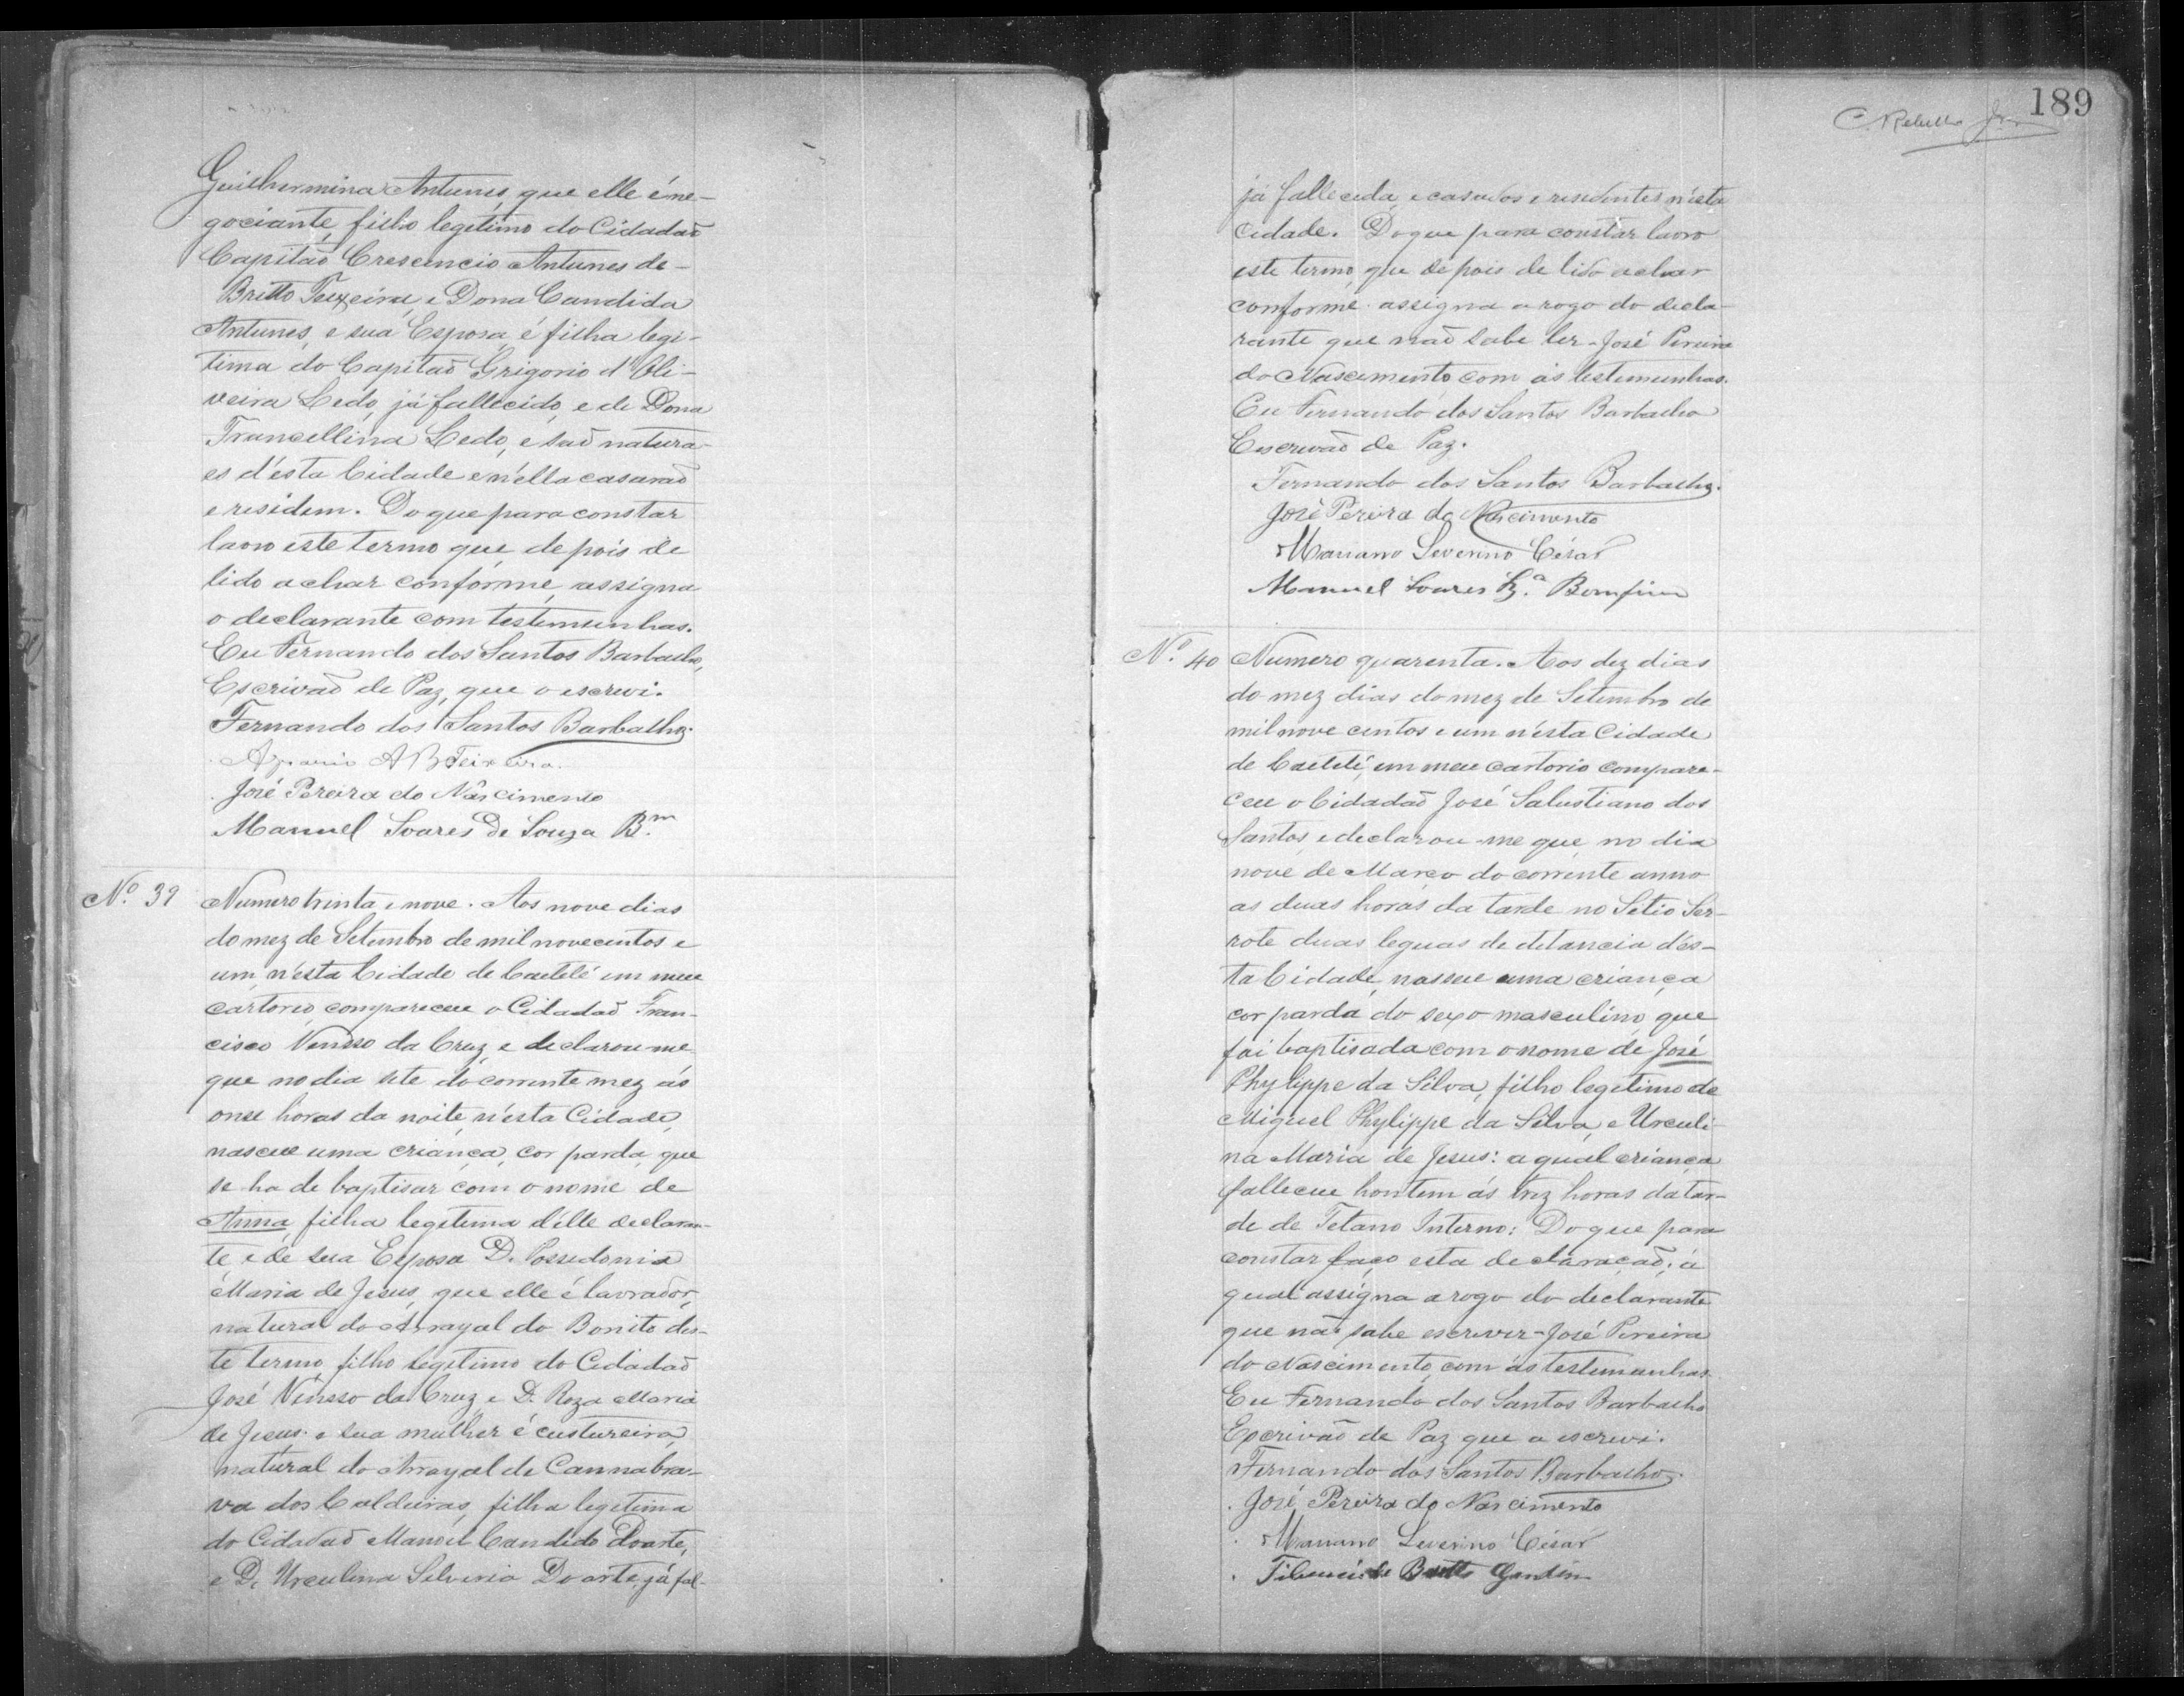 Guilhermina Antunes, que elle é ne-
gociante, filho legitimo do Cidadaõ
Capitaõ Crescencio Antunes de-
Britto Teixeira, e Dona Candida
Antunes, e sua Esposa, é filha legi-
tima do Capitaõ Grigorio d'Oli-
veira Ledo, já fallecido, e de Dona
Francellina Ledo, e saõ natura-
es d'ésta Cidade e n'élla casaraõ
e residem. Do que para constar
lavro este termo que, depois de
lido achar conforme, assigna
o declarante com testemunhas.
Eu Fernando dos Santos Barbalho,
Escrivaõ de Paz, que o escrevi.
Fernando dos Santos Barbalho.
A B Teixeira.
José Pereira do Nascimento
Manuel Soares de Souza B.m
Nº 39 Numero trinta e nove. Aos nove dias
do mez de Setembro de mil novecentos e
um, n'ésta Cidade de Caeteté em meu
cartorio, compareceu o Cidadaõ Fran-
cisco da Cruz, e declarou me
que no dia sete do corrente mez ás
onse horas da noite, n'ésta Cidade,
nasceu uma criança, cor parda, que
se ha de baptisar com o nome de
Anna, filha legitima d'élle declaran-
te, e de sua Esposa D. Possedonia
Maria de Jesus, que elle é lavrador,
natural do Arrayal do Bonito des-
te termo, filho legitimo do Cidadaõ
José da Cruz, e D. Roza Maria
de Jesus: e sua mulher é custureira,
natural do Arrayal de Cannabra-
va dos Caldeiras, filha legitima
do Cidadaõ Manoel Candido Doarte,
e D. Urculina Silveria Doarte, já fal-
189
C. Rebello Jr.
já fallecida, e casados e residentes n'ésta
Cidade. Do que para constar lavro
este termo, que depois de lido achar
conforme assigna a rogo do decla-
rante que naõ sabe ler - José Pereira
do Nascimento, com as testemunhas.
Eu Fernando dos Santos Barbalho
Escrivaõ de Paz.
Fernando dos Santos Barbalho.
José Pereira do Nascimento
Mariano Severino César
Manuel Soares Bomfim
Nº 40 Numero quarenta. Aos dez dias
do mez dias do mez de Setembro de
mil nove centos e um n'ésta Cidade
de Caeteté, em meu cartorio compare-
ceu o Cidadaõ José Salustiano dos
Santos, e declarou-me que, no dia
nove de Março do corrente anno
as duas horas da tarde no Sitio Ser-
rote duas leguas de ditancia d'és-
ta Cidade, nasceu uma criança
cor parda do sexo masculino, que
foi baptisada com o nome de José
Phylippe da Silva, filho legitimo de
Miguel Phylippe da Silva, e Urculi-
na Maria de Jesus: a qual criança
falleceu hontem ás trez horas da tar-
de de Tetano Interno: Do que para
constar faço esta declaraçaõ; á
qual assigna a rogo do declarante
que não sabe escrever - José Pereira
do Nascimento, com as testemunhas.
Eu Fernando dos Santos Barbalho
Escrivaõ de Paz que a escrevi.
Fernando dos Santos Barbalho.
José Pereira do Nascimento
Mariano Severino César
Britto Gondim